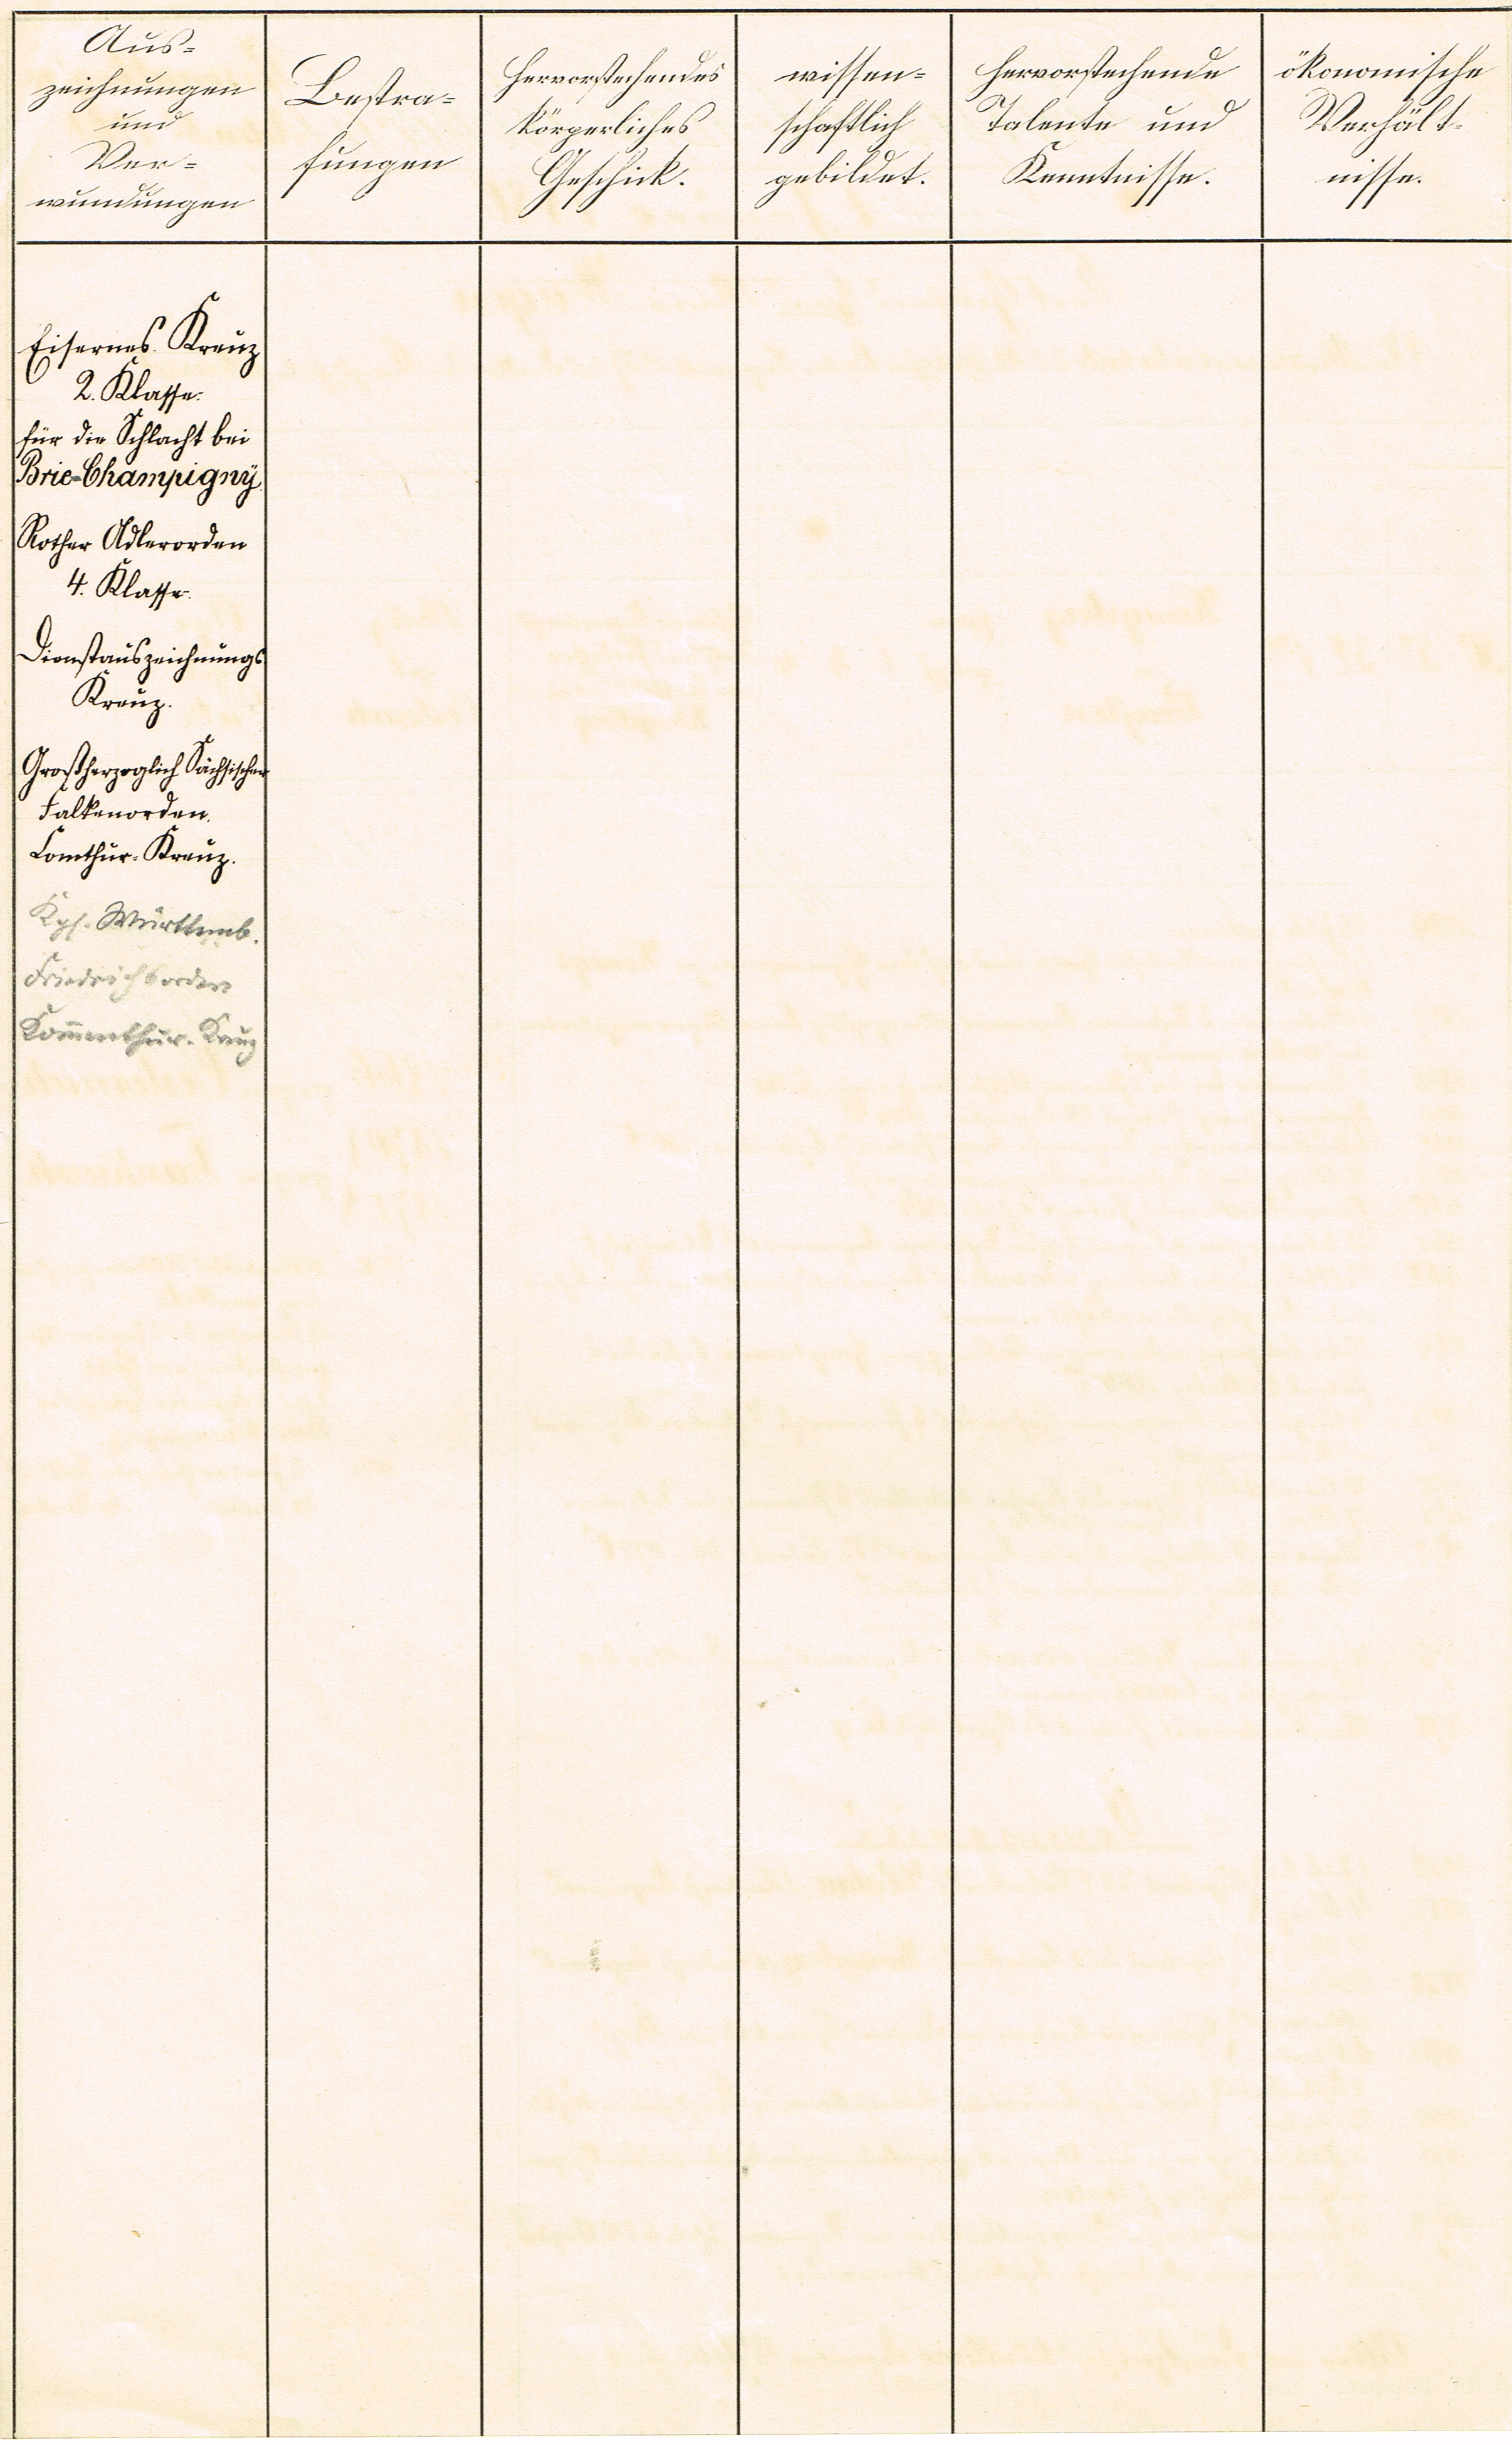 Aus-
zeichnungen
und
Ver-
wundungen
Bestra-
fungen
Hervorstechendes
körperliches
Geschick.
wissen-
schaftlich
gebildet.
hervorstechende
Talente und
Kenntnisse.
ökonomische
Verhält-
nisse.
Eisernes Kreuz
2. Klasse.
für die Schlacht bei
Brie-Champigny.
Rother Adlerorden
4. Klasse.
Dienstauszeichnungs
Kreuz.
Großherzoglich Sächsischer
Falkenorden.
Comthur-Kreuz.
Kgl. Württemb.
Friedrichsorden
Kom̅enthur-Kreuz